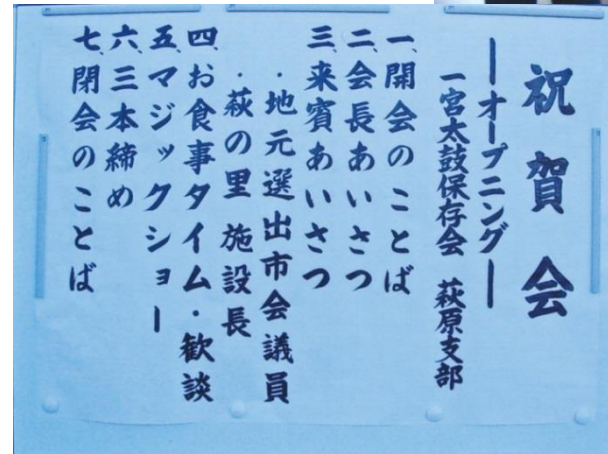 祝賀会
ーオープニングー
一宮太鼓保存会 萩原支部
一、開会のことば
二、会長あいさつ
三、来賓あいさつ
・地元選出市会議員
・萩の里 施設長
四、お食事タイム・歓談
五、マジックショー
六、三本締め
七、閉会のことば